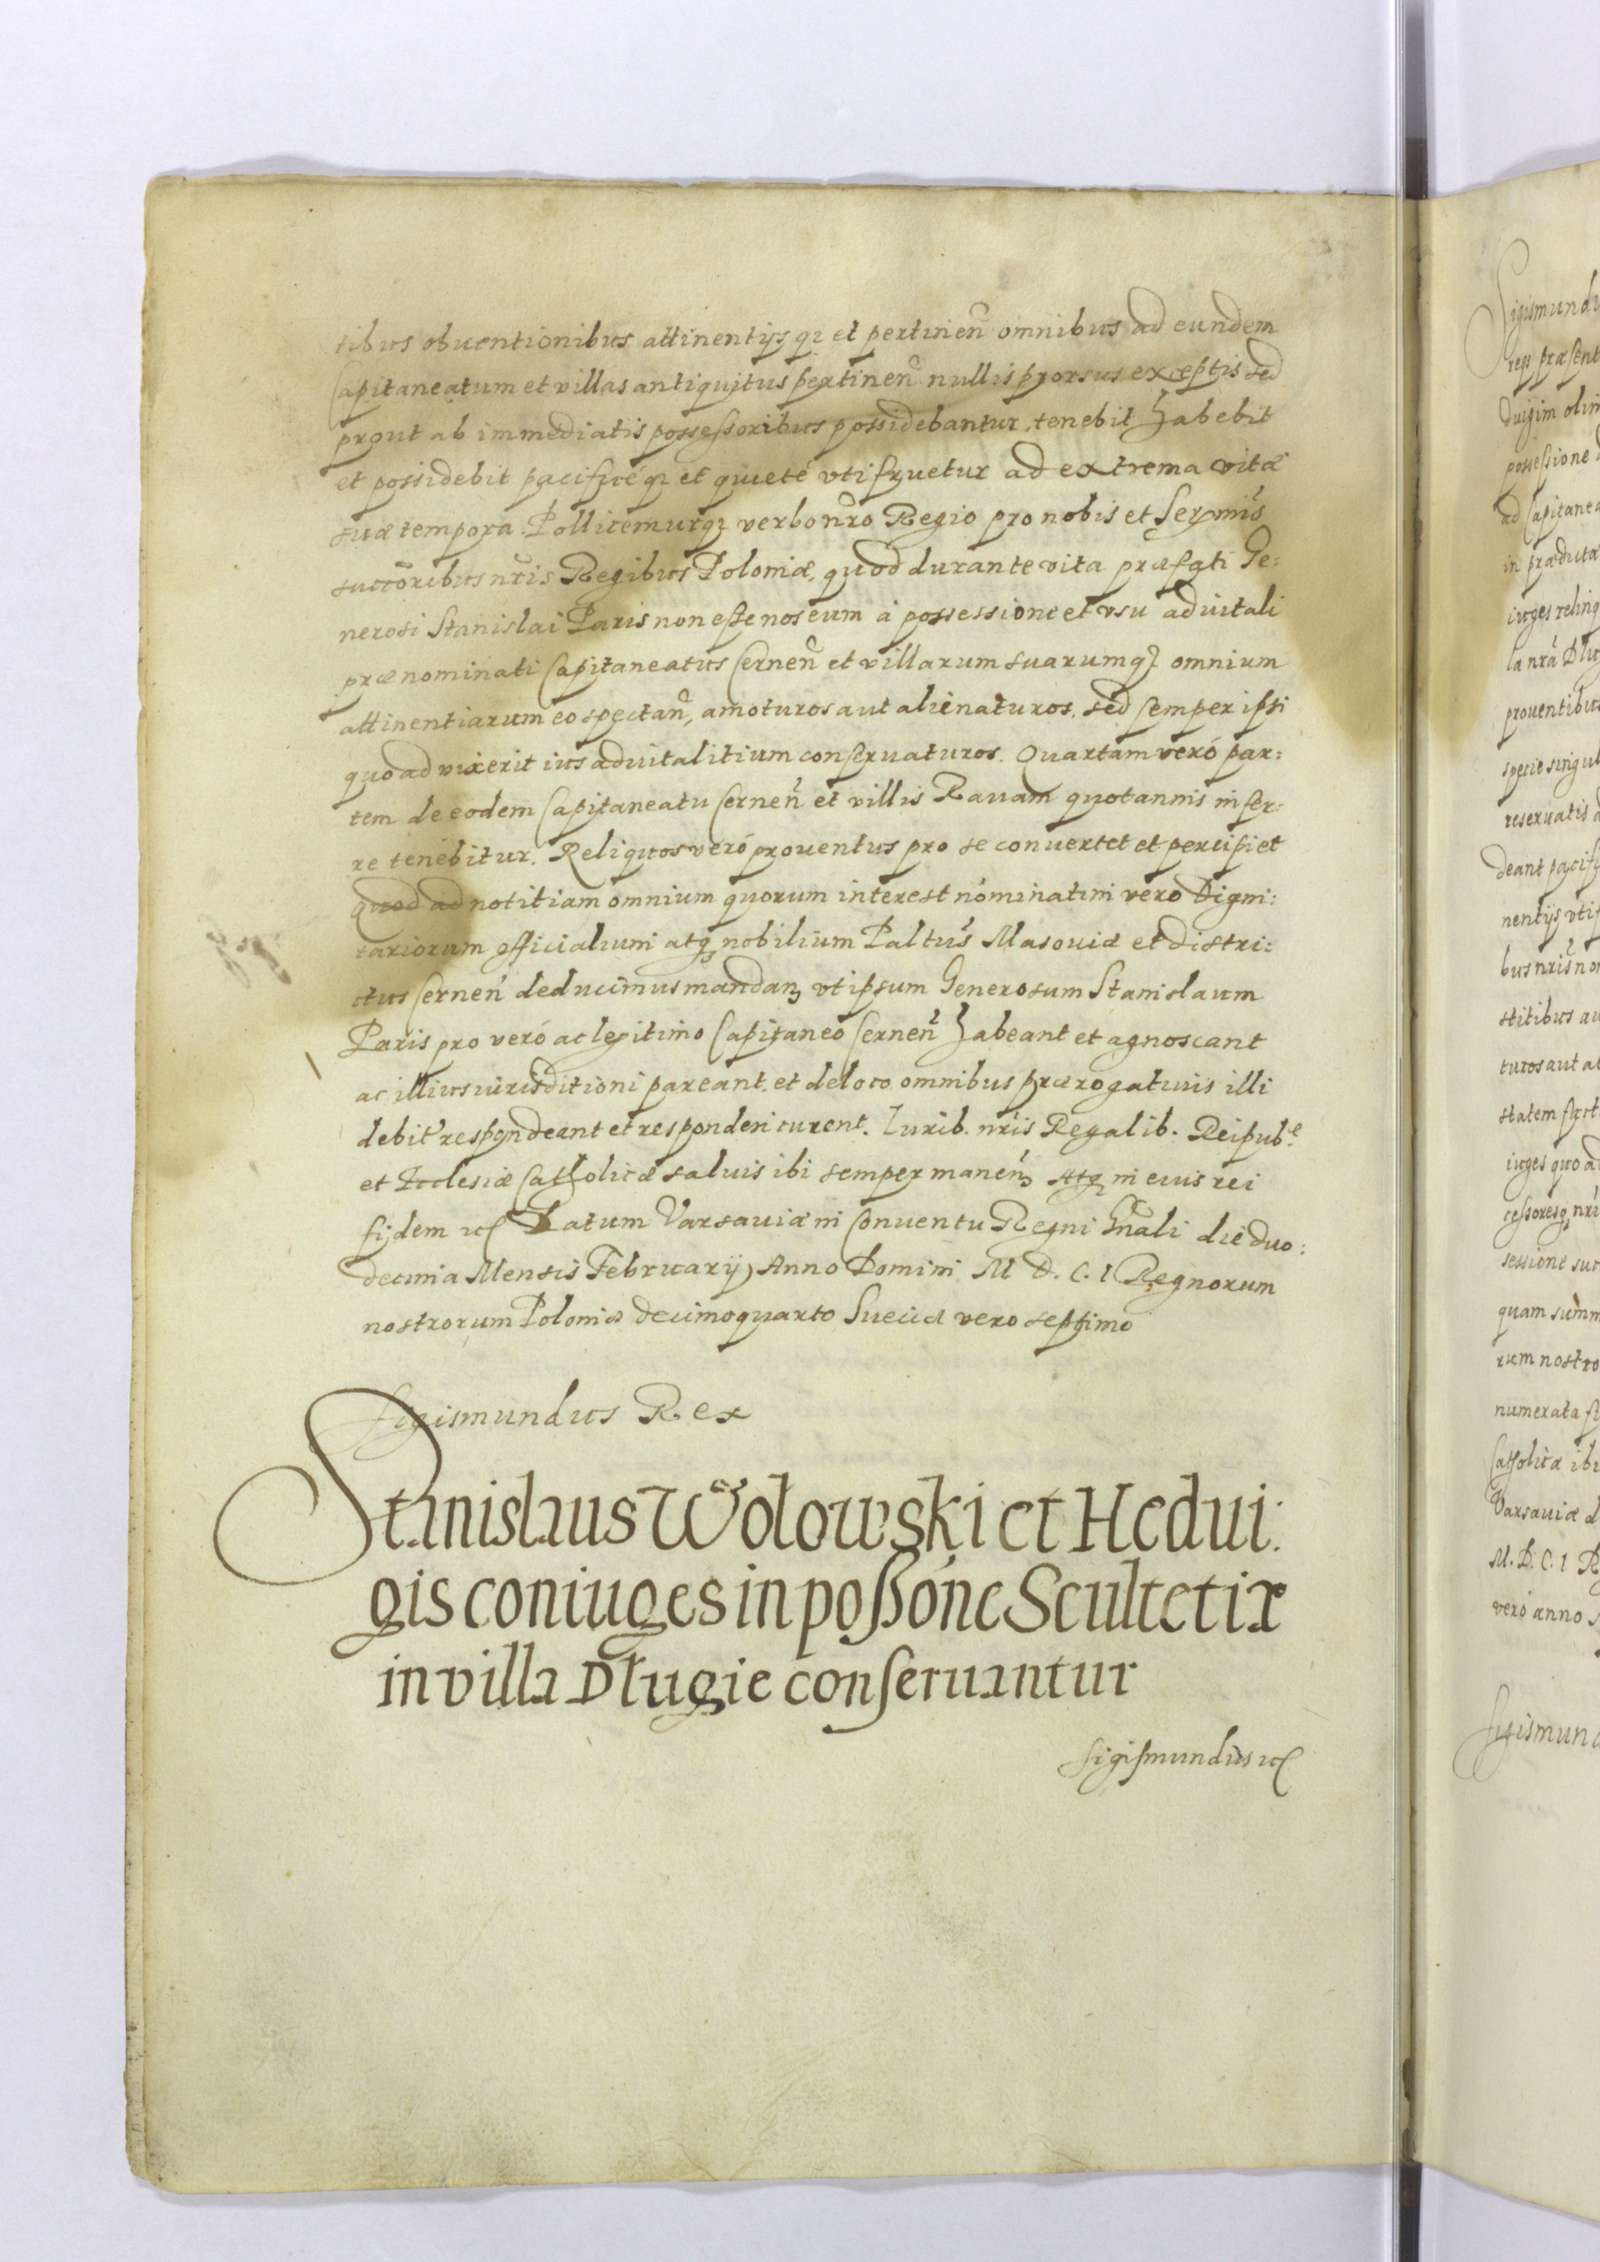 tibus obuentionibus attinentijsq; et pertineñ omnibus ad eundem
Capitaneatum et villas antiquitus pertineñ nullis prorsus exceptis sed
prout ab immediatis possessoribus possidebantur, tenebit habebit
et possidebit pacificéq; et quieté vtifruetur ad extrema vitæ
suæ tempora. Pollicemurq; verbo nr̃o Regio pro nobis et Sermis̃
succõribus nr̃is Regibus Poloniæ, quod durante vita præfati Ge:
nerosi Stanislai Paris non esse nos eum á possessione et vsu aduitali
prænominati Capitaneatus Cerneñ et villarum suarumq; omnium
attinentiarum eo spectañ, amoturos aut alienaturos, sed semper ipsi
quoad vixerit ius aduitalitium conseruaturos. Quartam veró par:
tem de eodem Capitaneatu Cerneñ et villis Rauam quotannis infer:
re tenebitur. Reliquos veró prouentus pro se conuertet et percipiet
Quod ad notitiam omnium quorum interest nominatim vero Digni:
tariorum officialium atq; nobilium Paltus̃ Masouiæ et distri:
ctus Cerneñ deducimus mandañ vt ipsum Generosum Stanislaum
Paris pro veró ac legitimo Capitaneo Cerneñ habeant et agnoscant
ac illius iurisditioni pareant, et de loco omnibus prærogatiuis illi
debit' respondeant et responderi curent. Iurib. nr̃is Regalib. Reipub.e
et Ecclesiæ Catholicæ saluis ibi semper maneñ Atq; in euis rei
fidem etc Datum Varsauiæ in Conuentu Regni Gñali die duo:
decima Mensis Februarij Anno Domini M D. C. I Regnorum
nostrorum Poloniæ decimoquarto Sueciæ vero septimo
Sigismundus Rex
Stanislaus Wołowski et Hedui:
gis coniuges in possõne Scultetiæ
in villa Długie conseruantur
Sigismundus etc
Sigismundu
reqȝ præsent
duigim olim
possessione
ad Capitanea
in prædicta
iuges relinq
la nr̃a Dług
prouentibus
specie singul
reseruatis
deant pacif
nentijs vtif
bus nr̃is no
stitibus au
turos aut al
statem fact
iuges quo ad
cessoresq; nr̃i
sessione suc
quam summ
rum nostro
numerata fi
Catholicæ ibi
Varsauiæ d
M. D. C. I R
veró anno s
Sigismund